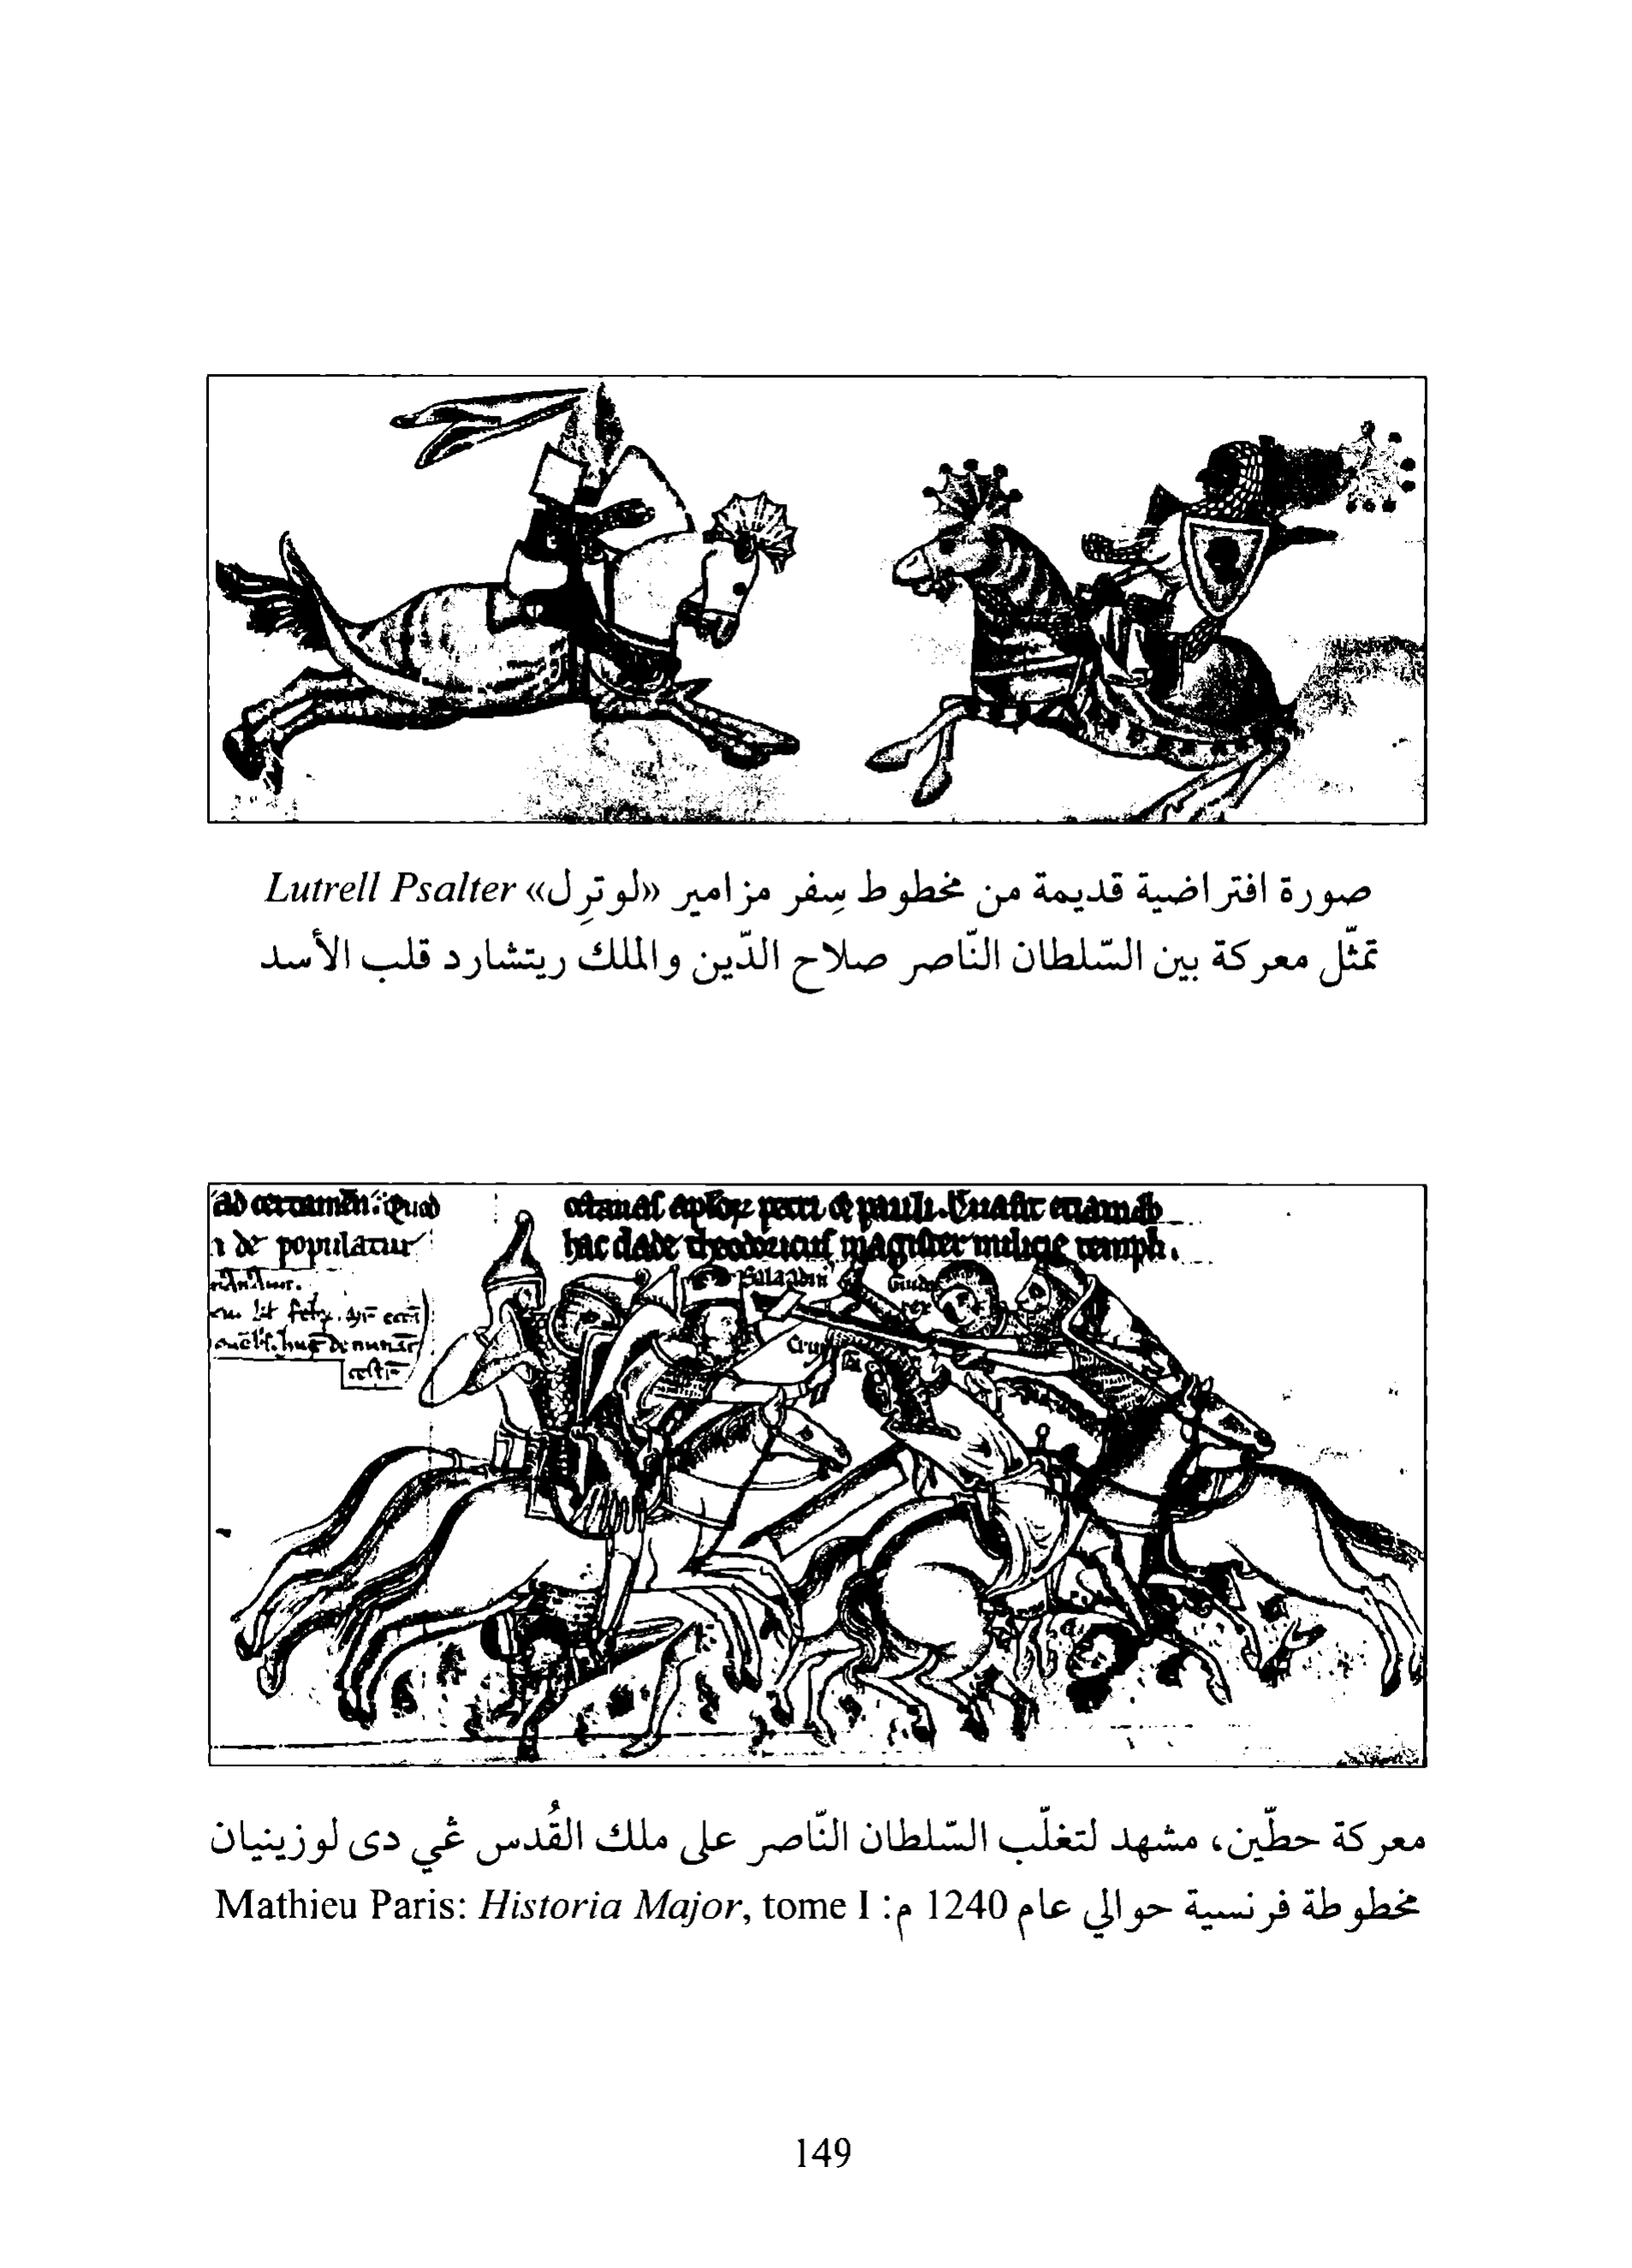 صورة افتراضية قديمة من مخطوط سِفر مزامير «لوترِل» Lutrell Psalter
تمثّل معركة بين السّلطان النّاصر صلاح الدّين والملك ريتشارد قلب الأسد
ad certamen. Quod
populatur
petri & pauli. Euasit etiam ab
hac clade theodoricus magister milicie templi.
Saladin
Guido
rex
معركة حطّين، مشهد لتغلّب السّلطان النّاصر على ملك القُدس غي دى لوزينيان
مخطوطة فرنسية حوالي عام 1240 م: Mathieu Paris: Historia Major, tome I
149